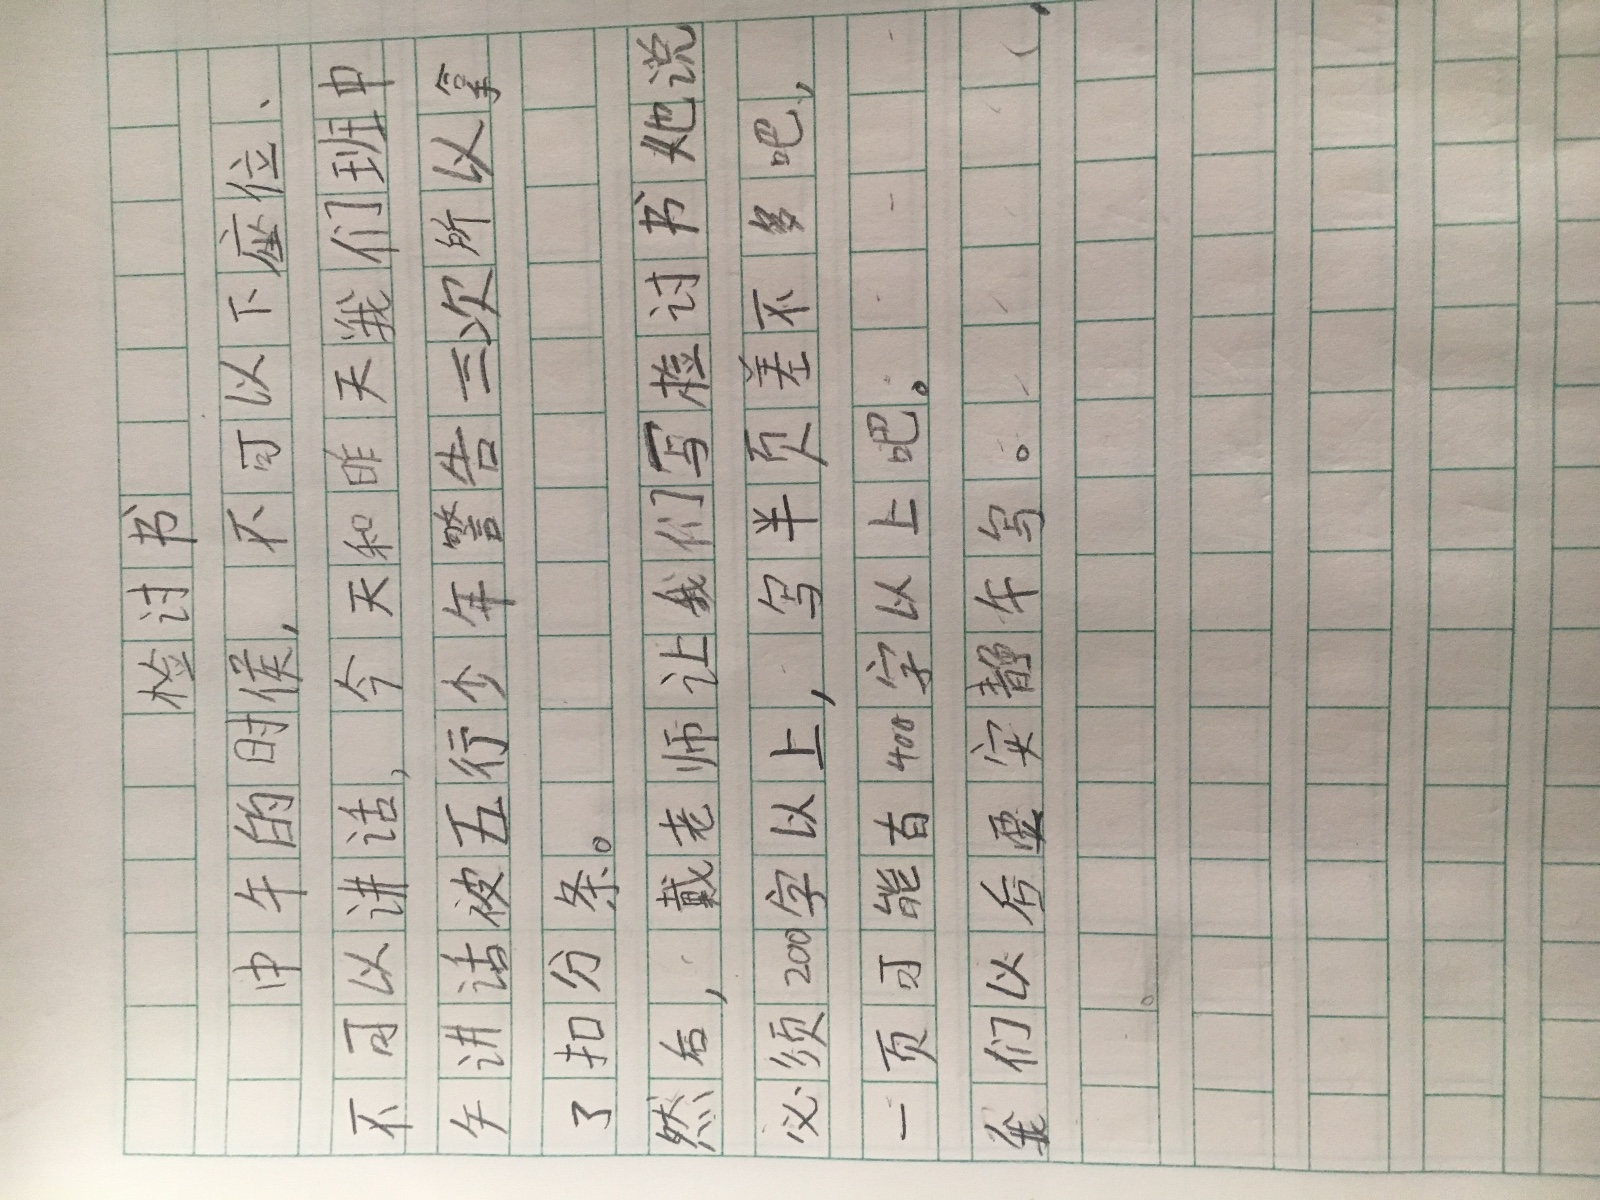 检讨书
中午的时候，不可以下座位、
不可以讲话，今天和昨天我们班中
午讲话被五行少年警告三次所以拿
了扣分条。
然后，戴老师让我们写检讨书她说
必须200字以上，写半页差不多吧，
一页可能有400字以上吧。
我们以后要安静午写。